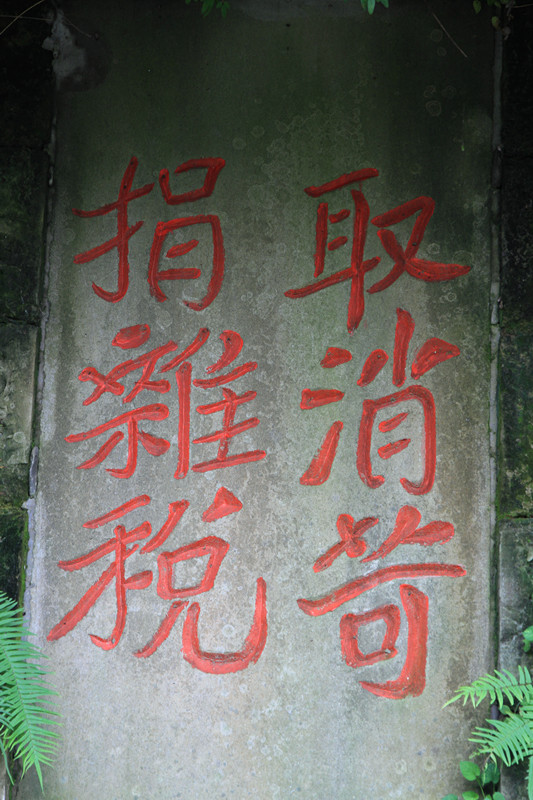 取消苛
捐雜税